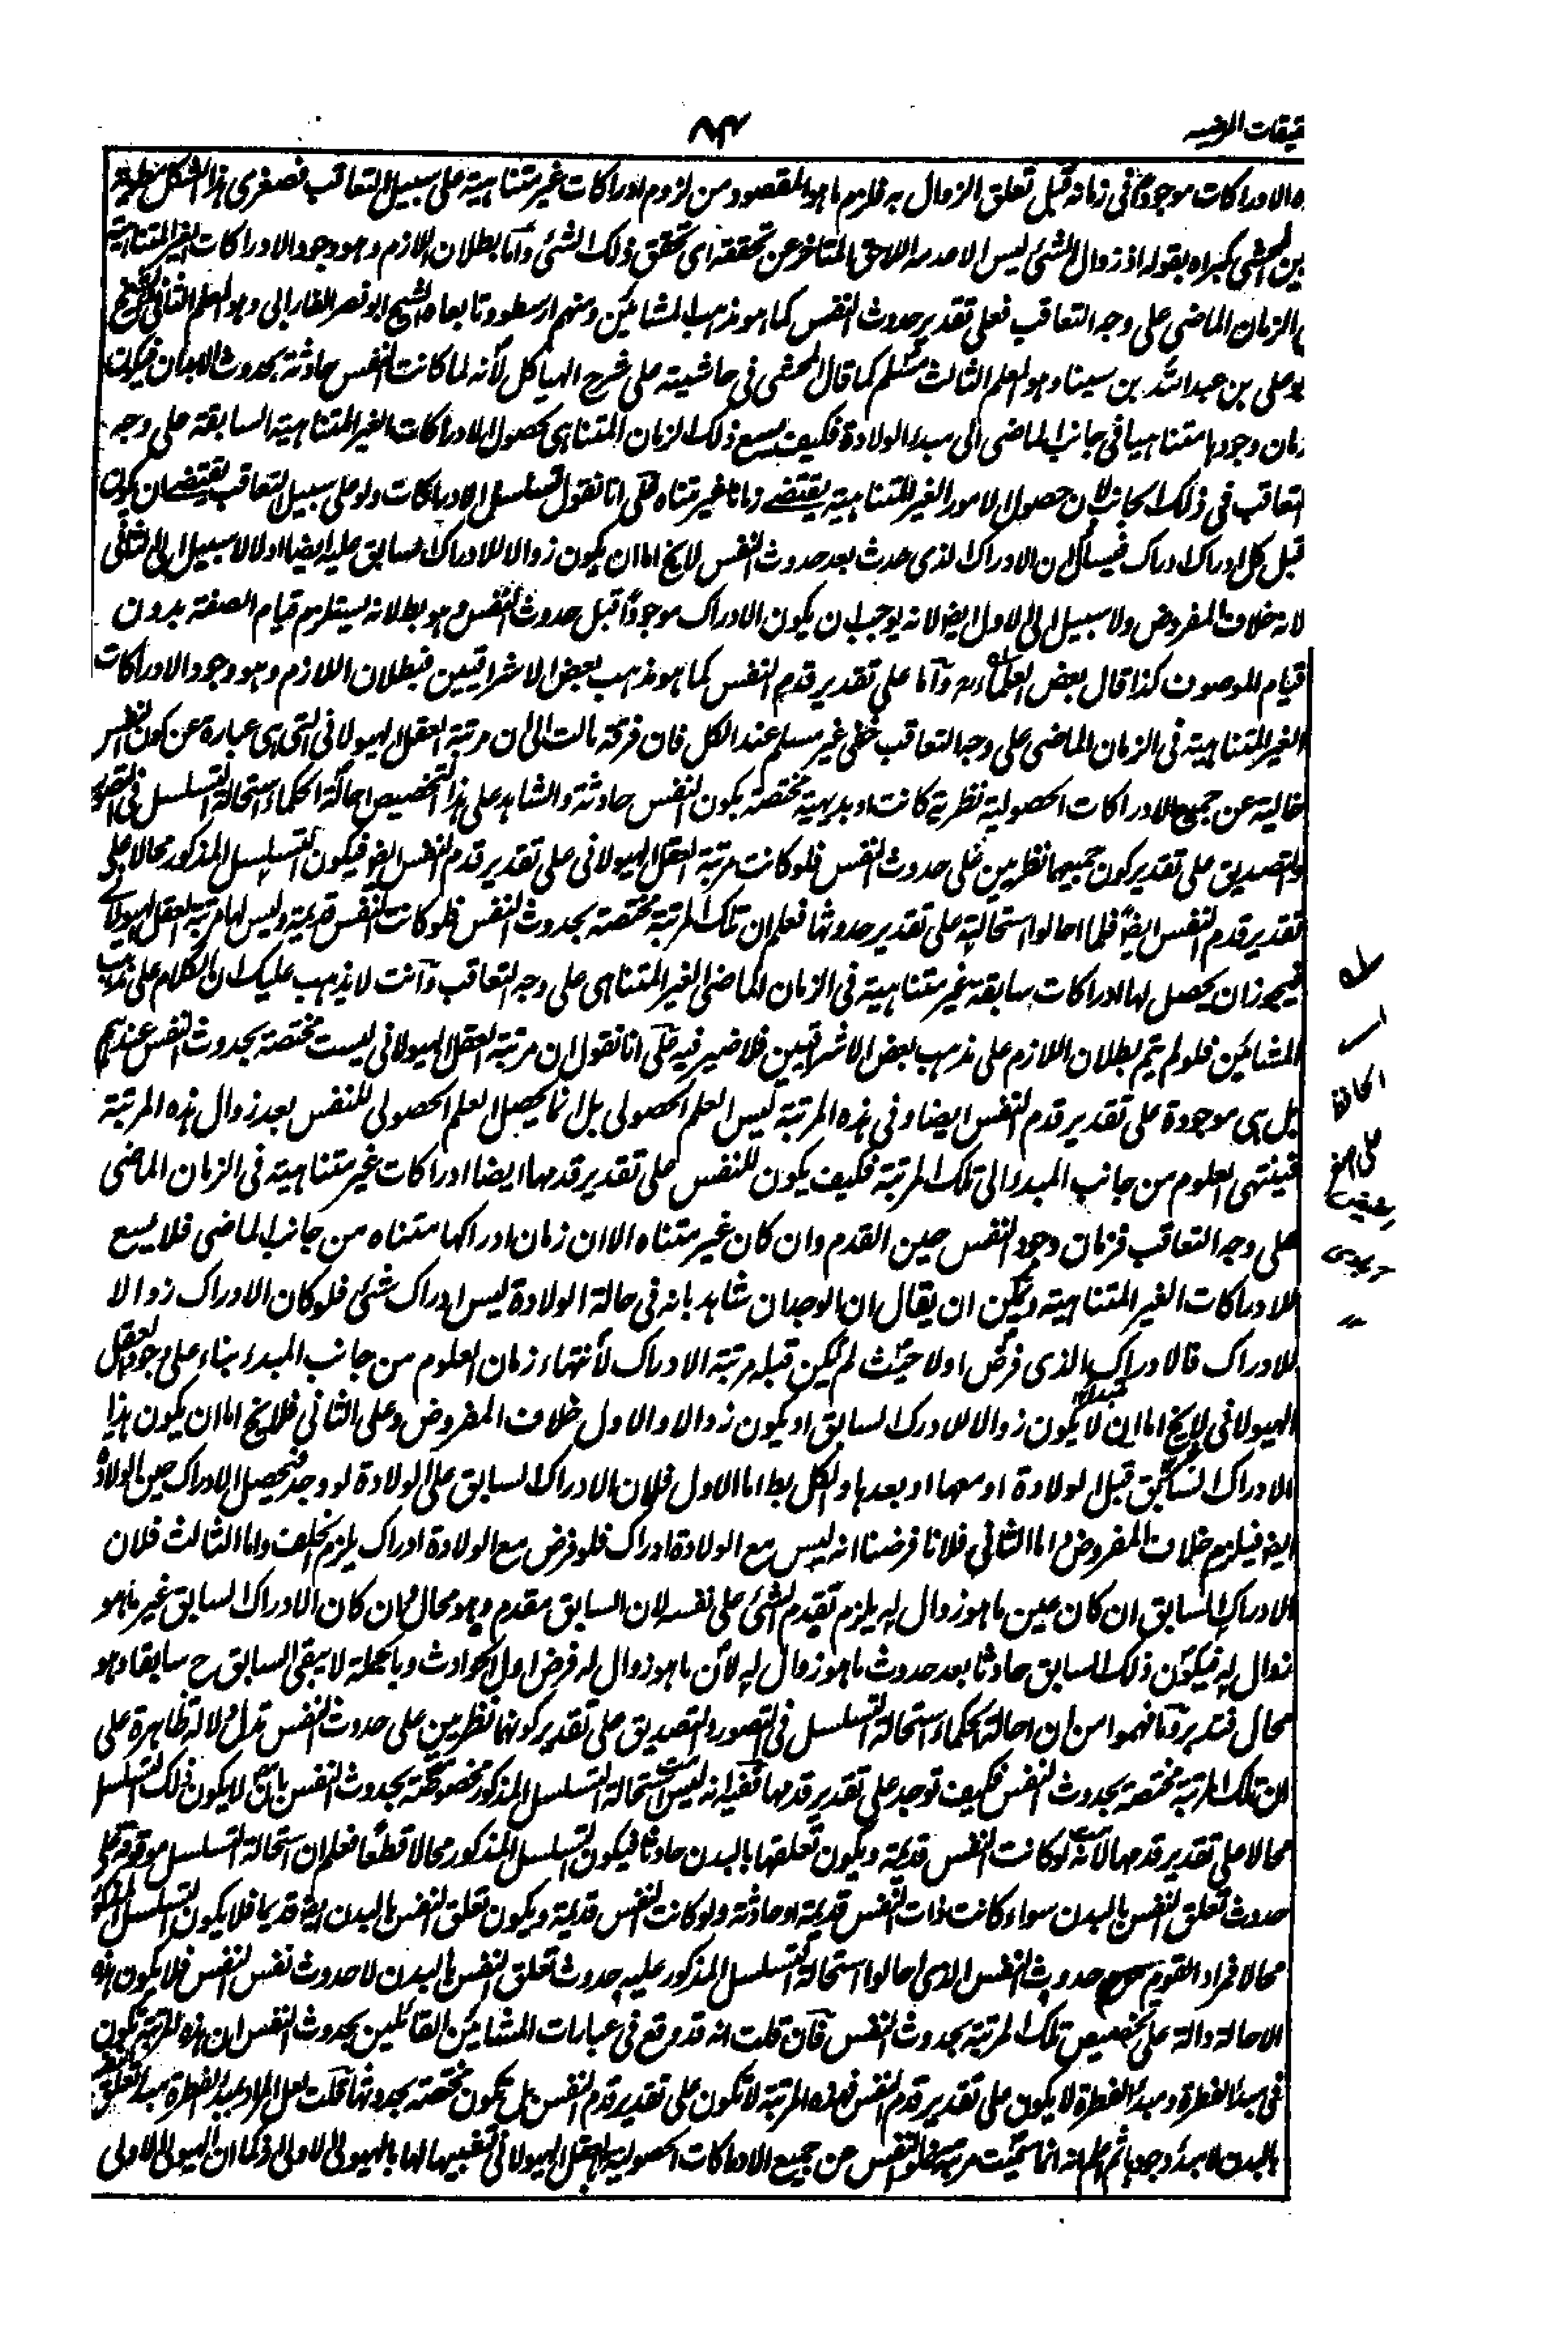 تحقيقات المرضيه
٨٣
ه الادراكات موجودا فى زمانه قبل تعلق الزوال به فلزم ما هو المقصود من لزوم ادراكات غير متناهية على سبيل التعاقب فصغرى هذا الشكل مطوية
بين المحشى كبراه بقوله اذ زوال الشئ ليس الا عدمه اللاحق المتاخر عن تحققه اى تحقق ذلك الشئ واما بطلان اللازم وهو وجود الادراكات الغير المتناهية
الزمان الماضى على وجه التعاقب فعلى تقدير حدوث النفس كما هو مذهب المشائين ومنهم ارسطو وتابعاه الشيخ ابو نصر الفارابى وهو المعلم الثانى والشيخ
بو على بن عبد الله بن سينا وهو المعلم الثالث مسلم كما قال المحشى فى حاشيته على شرح الهياكل لانه لما كانت النفس حادثة بحدوث الابدان فيكون
زمان وجودها متناهيا فى جانب الماضى الى مبدء الولادة فكيف يسع ذلك الزمان المتناهى بحصول الادراكات الغير المتناهية السابقة على وجه
التعاقب فى ذلك الجانب لان حصول الامور الغير المتناهية يقتضے زمانا غير متناه على انا نقول تسلسل الادراكات ولو على سبيل التعاقب يقتضے ان يكون
قبل كل ادراك ادراك فيسأل ان الادراك الذى حدث بعد حدوث النفس لايخ اما ان يكون زوالا للادراك السابق عليه ايضا اولا لا سبيل الى الثانى
لانه خلاف المفروض ولا سبيل الى الاول ايضا لانه يوجب ان يكون الادراك موجودا قبل حدوث النفس وهو بط لانه يستلزم قيام الصفة بدون
قيام الموصوف كذا قال بعض العلماء واما على تقدير قدم النفس كما هو مذهب بعض الاشراقيين فبطلان اللازم وهو وجود الادراكات
الغير المتناهية فى الزمان الماضى على وجه التعاقب خفى غير مسلم عند الكل فان فرقة مالت الى ان مرتبة العقل الهيولانى التى هى عبارة عن كون النفس
خالية عن جميع الادراكات الحصولية نظرية كانت او بديهية مختصة بكون النفس حادثة والشاهد على هذا التخصيص احالة الحكماء استحالة التسلسل فى التصور
والتصديق على تقدير كون جميعهما نظريين على حدوث النفس فلو كانت مرتبة العقل الهيولانى على تقدير قدم النفس ايضا فيكون التسلسل المذكور محالا على
تقدير قدم النفس ايضا فلما احالوا استحالته على تقدير حدوثها فعلم ان تلك المرتبة مختصة بحدوث النفس فلو كانت النفس قديمة وليس لها مرتبة العقل الهيولانى
فيجوز ان يحصل لها ادراكات سابقة غير متناهية فى الزمان الماضى الغير المتناهى على وجه التعاقب وانت لا يذهب عليك ان الكلام على مذهب
المشائين فلو لم يتم بطلان اللازم على مذهب بعض الاشراقيين فلا ضير فيه على انا نقول ان مرتبة العقل الهيولانى ليست مختصة بحدوث النفس عندهم
بل هى موجودة على تقدير قدم النفس ايضا وفى هذه المرتبة ليس العلم الحصولى بل انما يحصل العلم الحصولى للنفس بعد زوال هذه المرتبة
فينتهى العلوم من جانب المبدء الى تلك المرتبة فكيف يكون للنفس على تقدير قدمها ايضا ادراكات غير متناهية فى الزمان الماضى
على وجه التعاقب فزمان وجود النفس حين القدم وان كان غير متناه الا ان زمان ادراكها متناه من جانب الماضى فلا يسع
للادراكات الغير المتناهية ويمكن ان يقال ان الوجدان شاهد بانه فى حالة الولادة ليس ادراك شئ فلو كان الادراك زوالا
للادراك فالادراك الذى فرض اولا حيث لم يكن قبله مرتبة الادراك لانتهاء زمان العلوم من جانب المبدء بناء على وجود العقل
الهيولانى لايخ اما ان لا يكون زوالا للادراك السابق او يكون زوالا والاول خلاف المفروض وعلى الثانى فلايخ اما ان يكون هذا
الادراك السابق قبل الولادة او معها او بعدها والكل بط اما الاول فلان الادراك السابق على الولادة لو وجد فيحصل الادراك حين الولادة
ايضا فيلزم خلاف المفروض واما الثانى فلانا فرضنا انه ليس مع الولادة ادراك فلو فرض مع الولادة ادراك يلزم الخلف واما الثالث فلان
الادراك السابق ان كان عين ما هو زوال له يلزم تقدم الشئ على نفسه لان السابق مقدم وهو محال وان كان الادراك السابق غير ما هو
زوال له فيكون ذلك السابق حادثا بعد حدوث ما هو زوال له لان ما هو زوال له فرض اول الحوادث وبالجملة لا يبقى السابق ح سابقا وهو
محال فتدبر وما فهموا من ان احالة الحكماء استحالة التسلسل فى التصور والتصديق على تقدير كونهما نظريين على حدوث النفس تدل دلالة ظاهرة على
ان تلك المرتبة مختصة بحدوث النفس فكيف توجد على تقدير قدمها ففيه انه ليس استحالة التسلسل المذكور مخصوصة بحدوث النفس بان لا يكون ذلك التسلسل
محالا على تقدير قدمها لانه لو كانت النفس قديمة ويكون تعلقها بالبدن حادثا فيكون التسلسل المذكور محالا قطعا فعلم ان استحالة التسلسل موقوفة على
حدوث تعلق النفس بالبدن سواء كانت ذات النفس قديمة او حادثة ولو كانت النفس قديمة ويكون تعلق النفس بالبدن ايضا قديما فلا يكون التسلسل المذكور
محالا فمراد القوم من حدوث النفس الذى احالوا استحالة التسلسل المذكور عليه حدوث تعلق النفس بالبدن لا حدوث نفس النفس فلا يكون هذه
الاحالة دالة على تخصيص تلك المرتبة بحدوث النفس فان قلت انه قد وقع فى عبارات المشائين القائلين بحدوث النفس ان هذه المرتبة تكون
فى مبدء الفطرة ومبدء الفطرة لا يكون على تقدير قدم النفس فهذه المرتبة لا تكون على تقدير قدم النفس بل تكون مختصة بحدوثها قلت لعل المراد بمبدء الفطرة مبدء تعلق
بالبدن لا مبدء وجودها ثم اعلم انه انما سميت مرتبة خلو النفس عن جميع الادراكات الحصولية بالعقل الهيولانى تشبيها لها بالهيولى الاولى فكما ان الهيولى الاولى